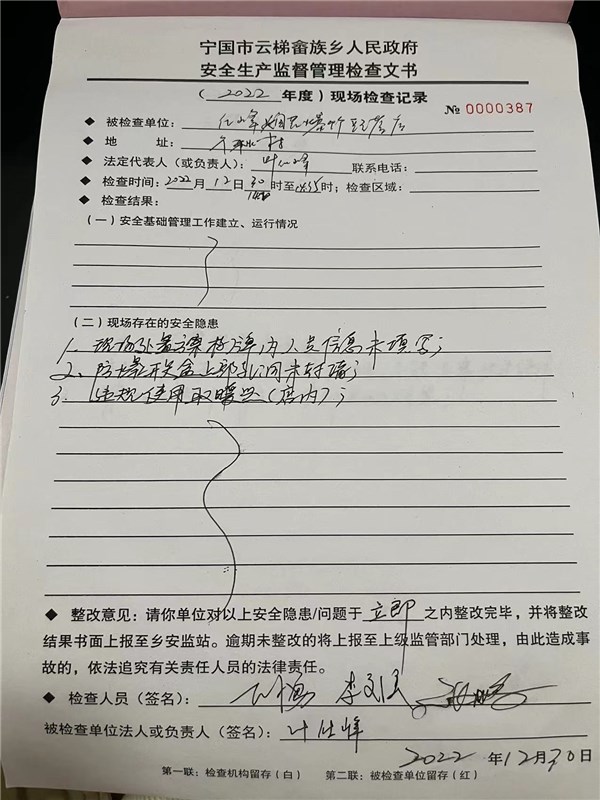 宁国市云梯畲族乡人民政府
安全生产监督管理检查文书
(2022年度)现场检查记录
№ 0000387
◆ 被检查单位:
◆ 地 址:
◆ 法定代表人(或负责人): 联系电话:
◆ 检查时间:2022月12日30时至 时;检查区域:
◆ 检查结果:
(一)安全基础管理工作建立、运行情况
(二)现场存在的安全隐患
1、现场处置方案 牌内人员信息未填写;
2、防爆开关盒上部孔洞未封堵;
3、违规使用取暖 (店内);
◆ 整改意见:请你单位对以上安全隐患/问题于 立即 之内整改完毕,并将整改
结果书面上报至乡安监站。逾期未整改的将上报至上级监管部门处理,由此造成事
故的,依法追究有关责任人员的法律责任。
◆ 检查人员(签名):
被检查单位法人或负责人(签名):叶仕峰
2022 年12月30日
第一联:检查机构留存(白) 第二联:被检查单位留存(红)